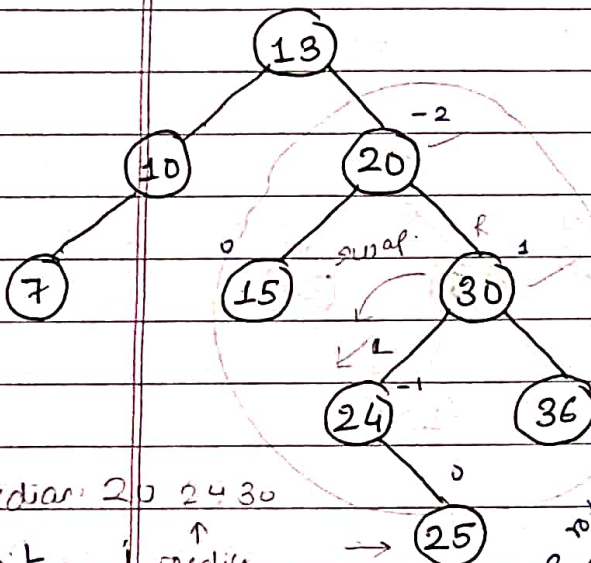 13
-2
10 20
R
0 swap. 1
7 15 30
L
24 -1 36
0
median: 20 24 30
↑
→ 25